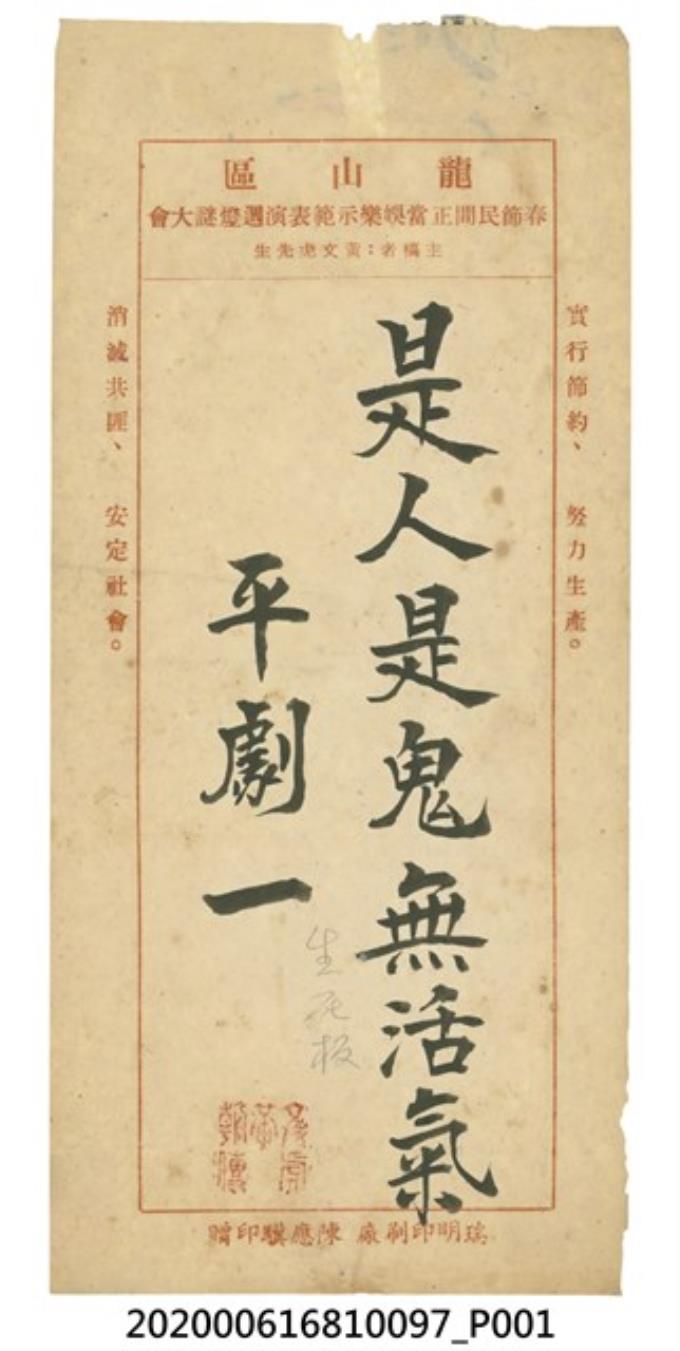 龍山區
春節民間正當娛樂示範表演週燈謎大會
主稿者：黃文虎先生
實行節約、努力生產。
是人是鬼無活氣
平劇一
生死板
消滅共匪、安定社會。
瑞明印刷廠 陳應騏印贈
202000616810097_P001